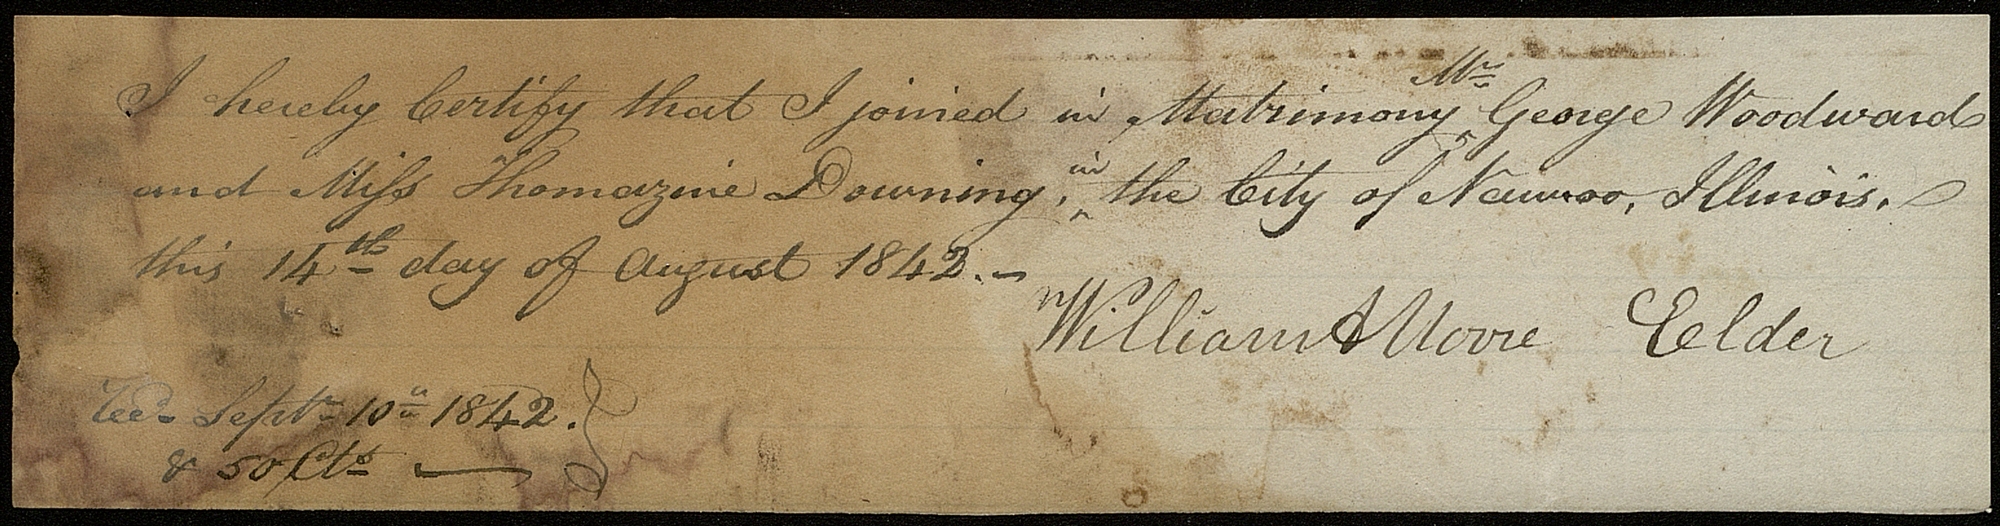 I hereby Certify that I joined in Matrimony Mr George Woodward
and Miss Thomazine Downing, in the City of Nauvoo, Illinois.
this 14th day of August 1842.—
William A Moore Eelder
Rec. Sept. 10th 1842.
& 50 Cts —